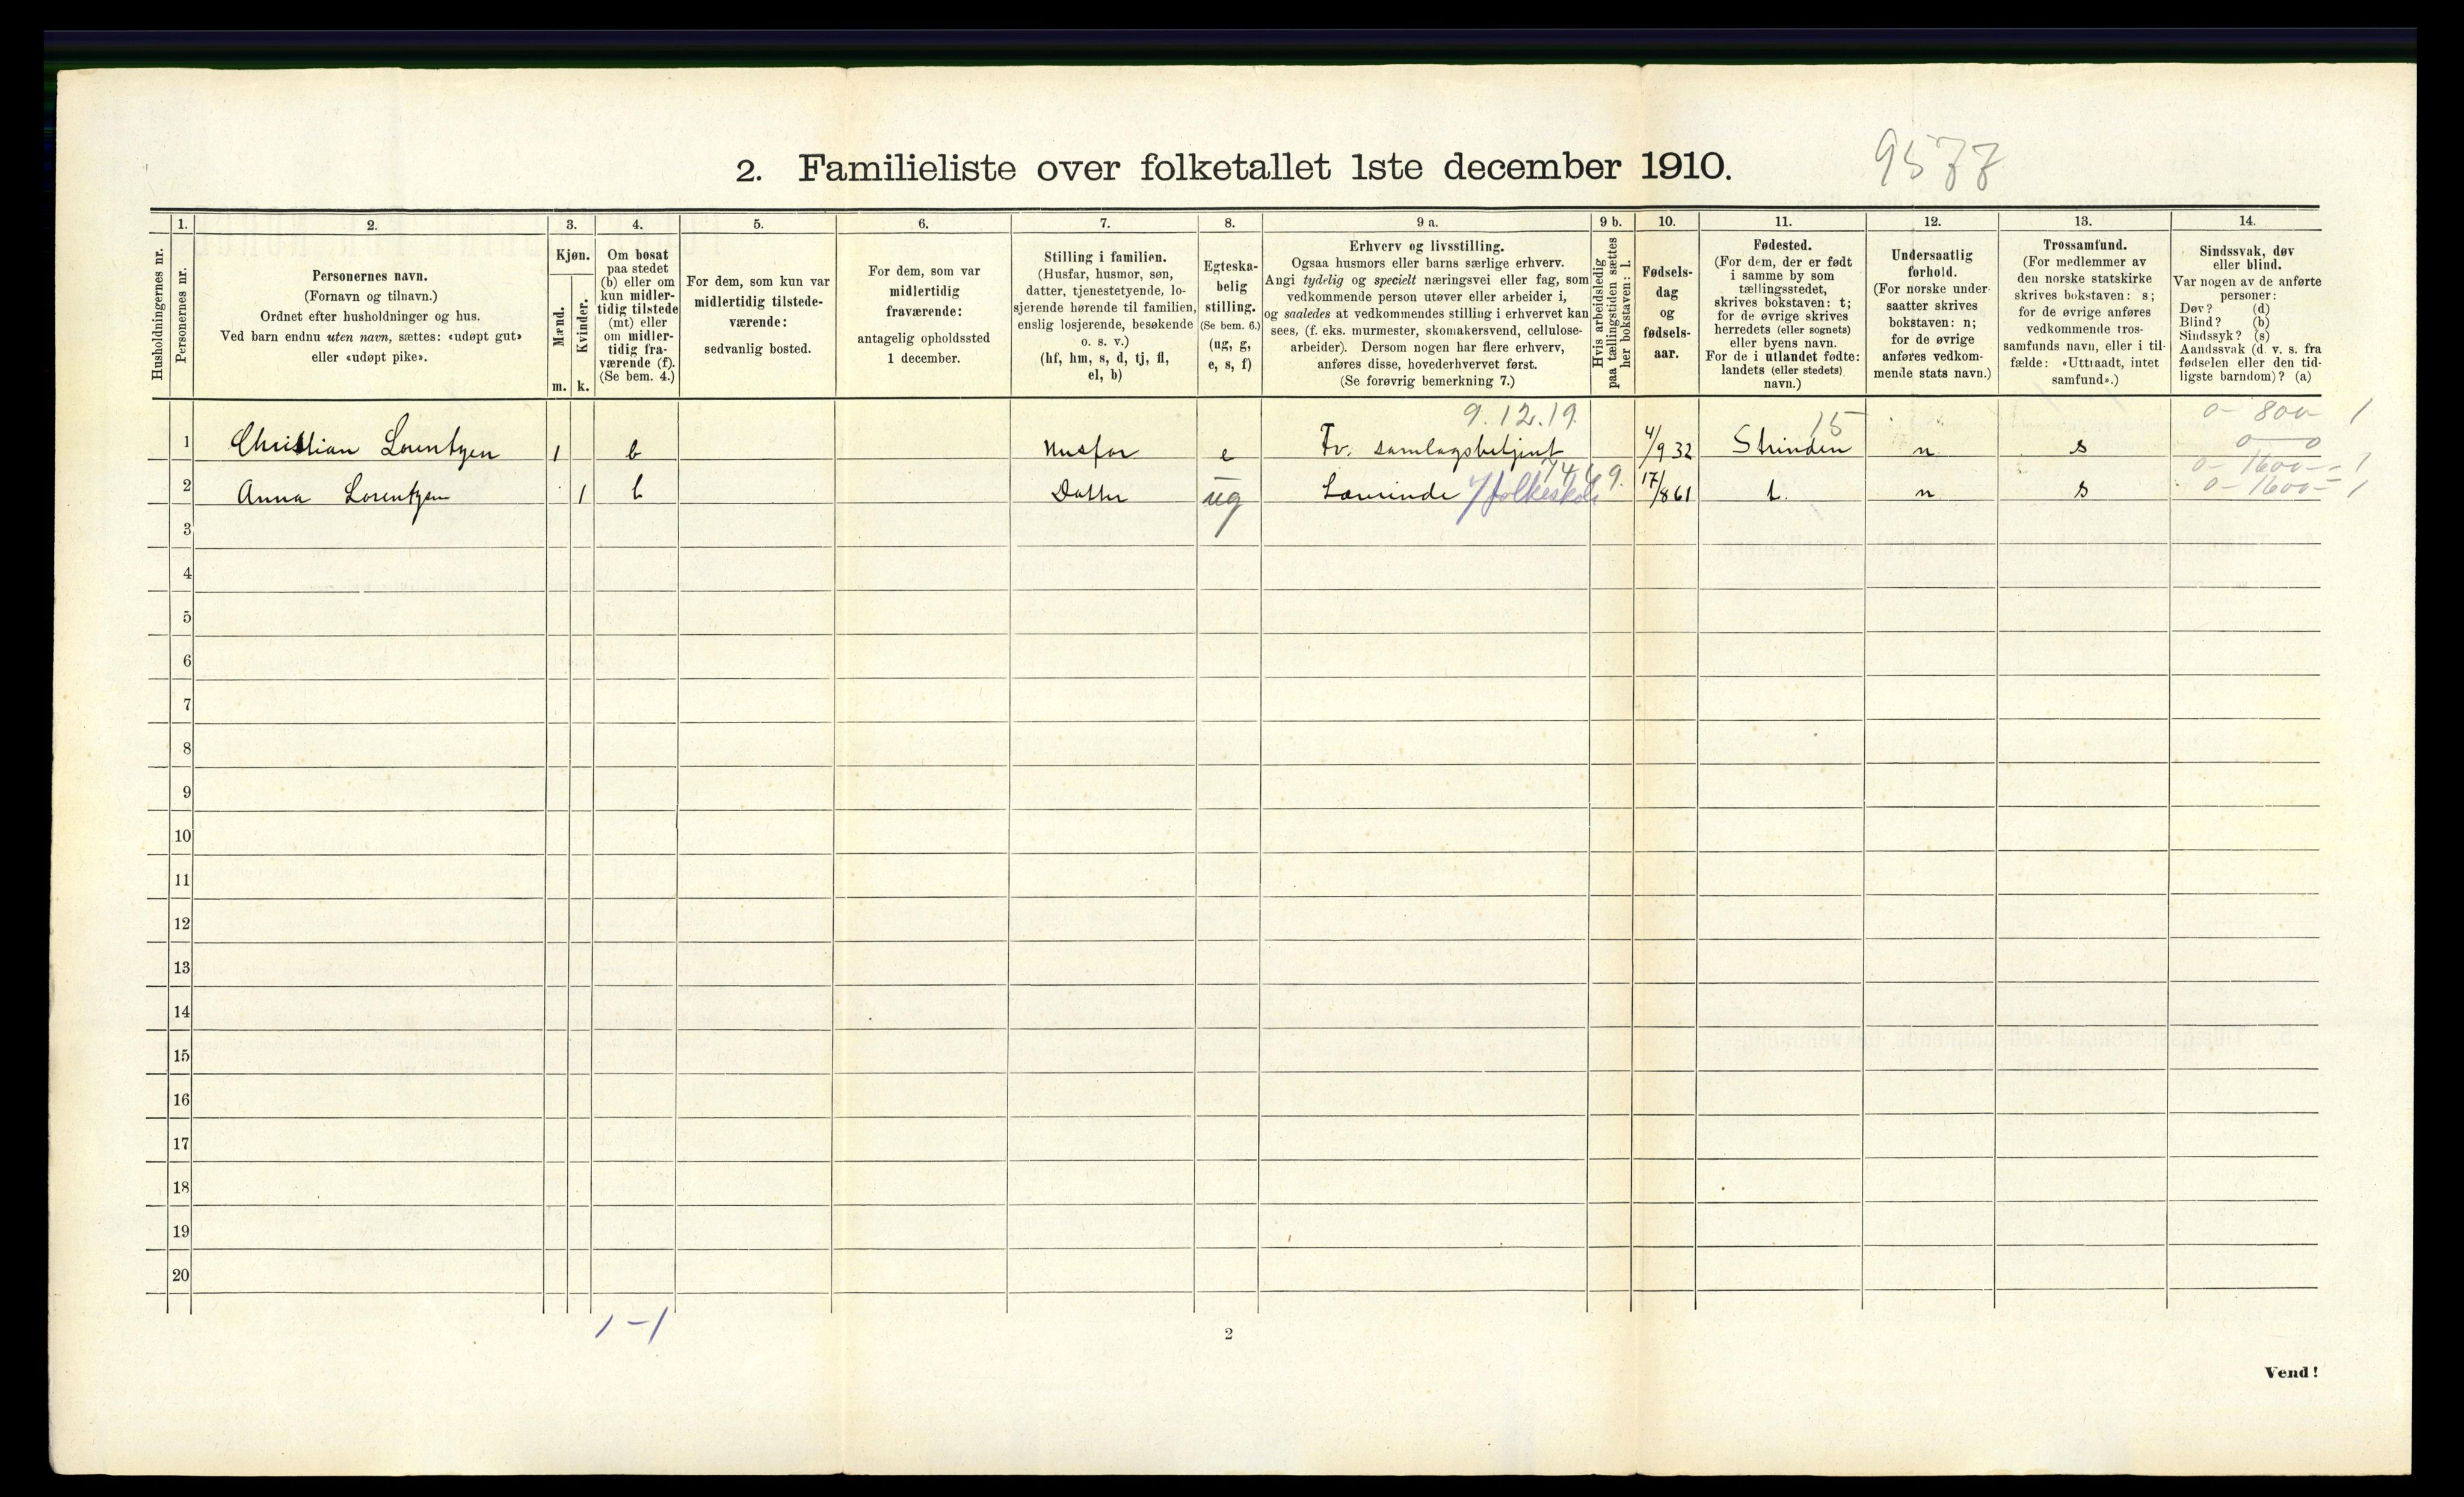 2. Familieliste over folketallet 1ste december 1910.
9577
Husholdningernes nr.
1.
Personernes nr.
2.
Personernes navn.
(Fornavn og tilnavn.)
Ordnet efter husholdninger og hus.
Ved barn endnu uten navn, sættes: «udøpt gut»
eller «udøpt pike».
3.
Kjøn.
Mænd.
Kvinder.
m. k.
4.
Om bosat
paa stedet
(b) eller om
kun midler-
tidig tilstede
(mt) eller
om midler-
tidig fra-
værende (f).
(Se bem. 4.)
5.
For dem, som kun var
midlertidig tilstede-
værende:
sedvanlig bosted.
6.
For dem, som var
midlertidig
fraværende:
antagelig opholdssted
1 december.
7.
Stilling i familien.
(Husfar, husmor, søn,
datter, tjenestetyende, lo-
sjerende hørende til familien,
enslig losjerende, besøkende
o. s. v.)
(hf, hm, s, d, tj, fl,
el, b)
8.
Egteska-
belig
stilling.
(Se bem. 6.)
(ug, g,
e, s, f)
9 a.
Erhverv og livsstilling.
Ogsaa husmors eller barns særlige erhverv.
Angi tydelig og specielt næringsvei eller fag, som
vedkommende person utøver eller arbeider i,
og saaledes at vedkommendes stilling i erhvervet kan
sees, (f. eks. murmester, skomakersvend, cellulose-
arbeider). Dersom nogen har flere erhverv,
anføres disse, hovederhvervet først.
(Se forøvrig bemerkning 7.)
9 b.
Hvis arbeidsledig
paa tællingstiden sættes
her bokstaven: l.
10.
Fødsels-
dag
og
fødsels-
aar.
11.
Fødested.
(For dem, der er født
i samme by som
tællingsstedet,
skrives bokstaven: t;
for de øvrige skrives
herredets (eller sognets)
eller byens navn.
For de i utlandet fødte:
landets (eller stedets)
navn.)
12.
Undersaatlig
forhold.
(For norske under-
saatter skrives
bokstaven: n;
for de øvrige
anføres vedkom-
mende stats navn.)
13.
Trossamfund.
(For medlemmer av
den norske statskirke
skrives bokstaven: s;
for de øvrige anføres
vedkommende tros-
samfunds navn, eller i til-
fælde: «Uttraadt, intet
samfund».)
14.
Sindssvak, døv
eller blind.
Var nogen av de anførte
personer:
Døv? (d)
Blind? (b)
Sindssyk? (s)
Aandssvak (d. v. s. fra
fødselen eller den tid-
ligste barndom)? (a)
9.12.19. 15 0- 800- 1
1 Christian Lorentzen 1 b Husfar e Fv. samlagsbetjent 4/9 32 Strinden n s 0 — 0
0- 1600 - - 1
2 Anna Lorentzen 1 b Datter ug Lærerinde v/folkeskole 9. 17/8 61 t. n s 0- 1600- 1
3
4
5
6
7
8
9
10
11
12
13
14
15
16
17
18
19
20
1-1
2
Vend!